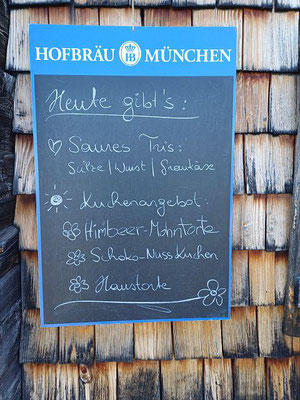 HOFBRÄU HB MÜNCHEN
Heute gibt's:
Saures Tris:
Sülze/Wurst/Graukäse
Kuchenangebot:
Himbeer-Mohntorte
Schoko-Nusskuchen
Haustorte